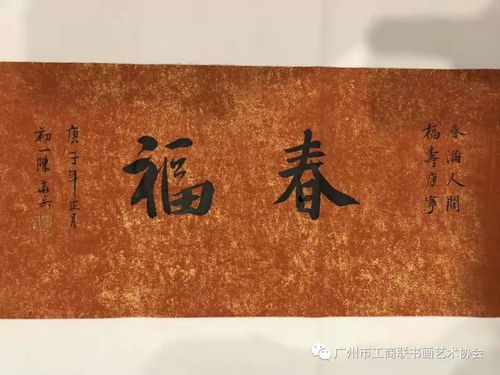 春满人間
福壽康寧
春福
庚子年正月
初一陳
广州市工商联书画艺术协会